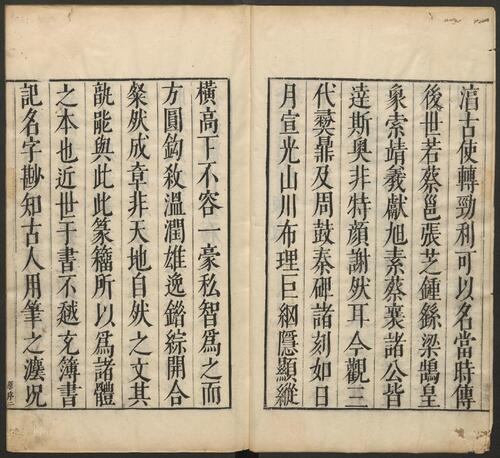 淳古使轉勁利可以名當時傳
後世若蔡邕張芝鍾繇梁鵠皇
象索靖羲獻旭素蔡襄諸公皆
達斯奥非特顔謝然耳今觀三
代彝鼎及周鼓秦碑諸刻如日
月宣光山川布理巨綱隱顯縱
橫高下不容一豪私智爲之而
方圓鈎殺溫潤雄逸錯綜開合
粲然成章非天地自然之文其
孰能與此此篆籀所以爲諸體
之本也近世于書不越充簿書
記名字尠知古人用筆之灋况